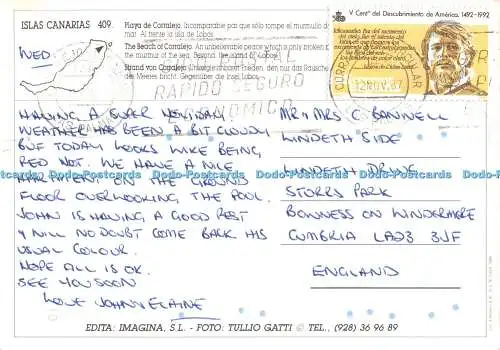 ISLAS CANARIAS 409.
Playa de Corralejo. Incomparable paz que sólo rompe el murmullo del
mar. Al frente la isla de Lobos.
The Beach of Corralejo. An unbelievable peace which is only broken
the murmur of the sea. Beyond the Island of Lobos.
Strand von Corralejo. Unvergleichbarer Frieden, den nur das Rauschen
des Meeres bricht. Gegenüber die Insel Lobos.
V Centº del Descubrimiento de América. 1492-1992
RAPIDO SEGURO
12 NOV. 87
WED.
HAVING A SUPER HOLIDAY,
WEATHER HAS BEEN A BIT CLOUDY
BUT TODAY LOOKS LIKE BEING
RED HOT. WE HAVE A NICE
APARTMENT ON THE GROUND
FLOOR OVERLOOKING THE POOL.
JOHN IS HAVING A GOOD REST
& WILL NO DOUBT COME BACK HIS
USUAL COLOUR.
HOPE ALL IS OK.
SEE YOU SOON
LOVE JOHN & ELAINE
MR & MRS C BANNELL
LINDETH SIDE
LINDETH DRIVE
STORRS PARK
BOWNESS ON WINDERMERE
CUMBRIA LA23 3JF
ENGLAND
Dodo-Postcards Dodo-Postcards Dodo-Postcards Dodo-Postcards
EDITA: IMAGINA, S.L. - FOTO: TULLIO GATTI © TEL., (928) 36 96 89